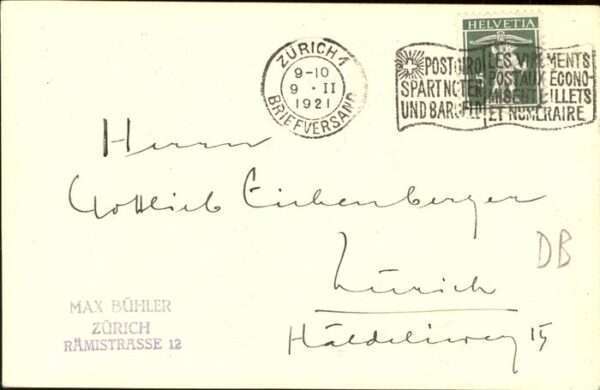 HELVETIA
ZÜRICH 1
9-10
9 · II
1921
BRIEFVERSAND
POSTGIRO
SPART NOTEN
UND BARGELD
LES VIREMENTS
POSTAUX ÉCONO-
MISENT BILLETS
ET NUMÉRAIRE
Herrn
Gottlieb Eichenberger
Zürich
Häldeliweg 15
DB
MAX BÜHLER
ZÜRICH
RÄMISTRASSE 12